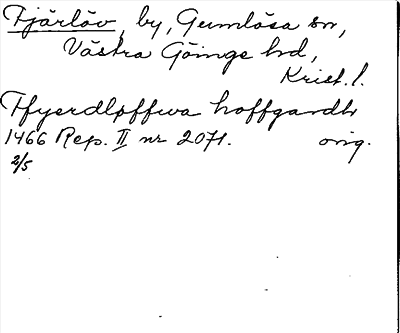 Fjärlöv, by, Gumlösa sn,
Västra Göinge hd,
Krist. l.
Ffyerdløffwa hoffgardh
1466 Rep. II nr 2071. orig.
2/5